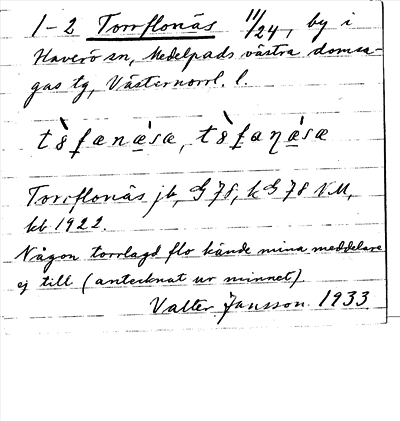 1-2 Torrflonäs 11/24, by i
Haverö sn, Medelpads västra domsa-
gas tg, Västernorrl. l.
Torrflonäs jb, G 78, kG 78 VM,
kb 1922.
Någon torrlagd flo kände mina meddelare
ej till (antecknat ur minnet).
Valter Jansson 1933